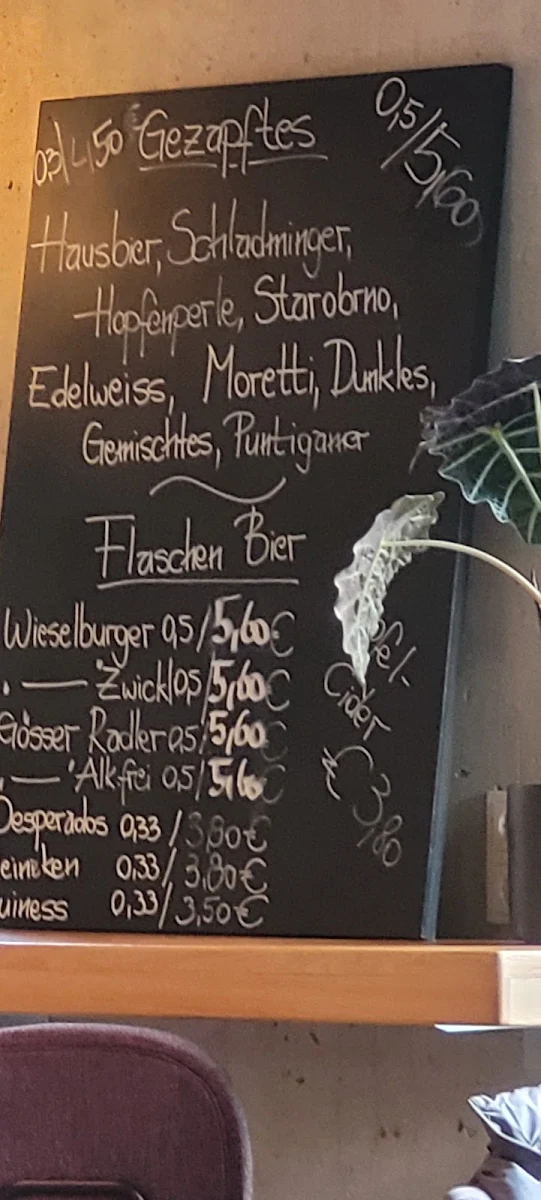 0,3/4,50 € Gezapftes 0,5/5,60
Hausbier, Schladminger,
Hopfenperle, Starobrno,
Edelweiss, Moretti, Dunkles,
Gemischtes, Puntigamer
Flaschen Bier
Wieselburger 0,5/5,60€
-"- Zwickl 0,5/5,60€
Gösser Radler 0,5/5,60€
-"- Alkfrei 0,5/5,60
Desperados 0,33/3,80€
eineken 0,33/3,80€
uiness 0,33/3,50€
fel-
Cider
€ 3,80